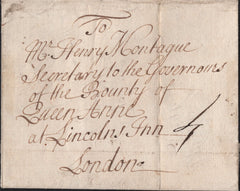 To
Mr. Henry Montague
Secretary to the Governours
of the Bounty of
Queen Anne
at Lincolns Inn 4
London